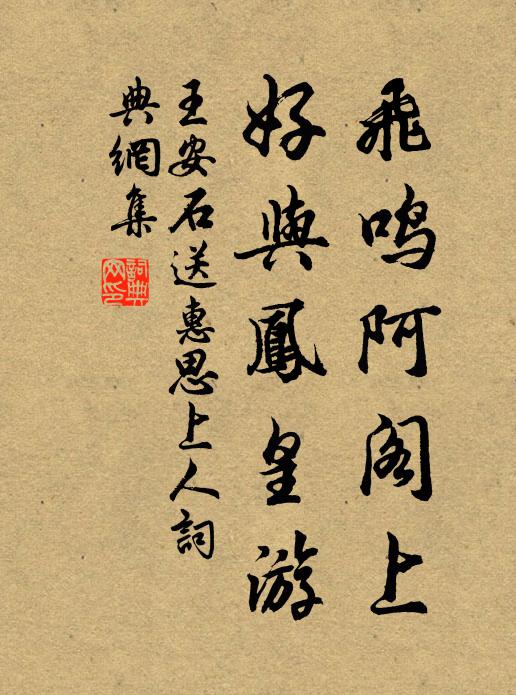 飛鳴阿阁上
好與鳳皇游
王安石送惠思上人詞
典網集
詞典
网印